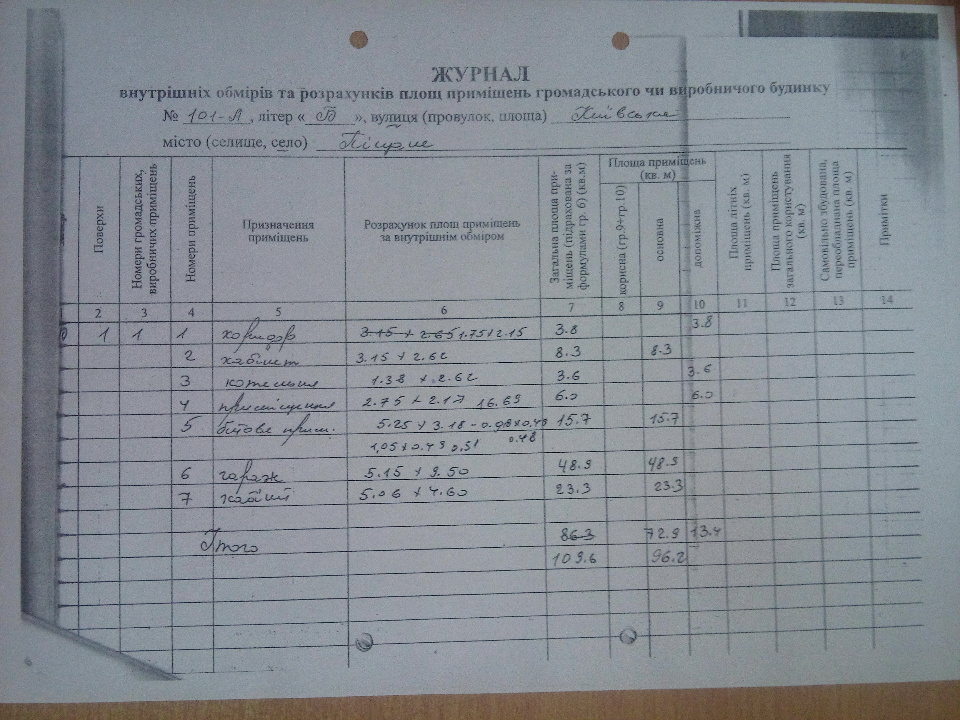 ЖУРНАЛ
внутрішніх обмірів та розрахунків площ приміщень громадського чи виробничого будинку
№ 101-А, літер « Б », вулиця (провулок, площа) Київська
місто (селище, село)
Поверхи
Номери громадських, виробничих приміщень
Номери приміщень
Призначення приміщень
Розрахунок площ приміщень за внутрішнім обміром
Загальна площа приміщень (підрахована за формулами гр. 6) (кв.м)
Площа приміщень (кв. м)
корисна (гр.9+гр.10)
основна
допоміжна
Площа літніх приміщень (кв. м)
Площа приміщень загального користування (кв. м)
Самовільно збудована, переобладнана площа приміщень (кв. м)
Примітки
2 3 4 5 6 7 8 9 10 11 12 13 14
1 1 1 коридор 3.15 × 2.65 1.75×2.15 3.8 3.8
2 кабінет 3.15 × 2.62 8.3 8.3
3 котельня 1.38 × 2.62 3.6 3.6
4 приміщення 2.75 × 2.17 16.69 6.0 6.0
5 битове прим. 5.25 × 3.18 - 0.98×0.49 15.7 15.7
1,05×0.49 0.51 0.48
6 гараж 5.15 × 9.50 48.9 48.9
7 5.06 × 4.60 23.3 23.3
Итого 86.3 72.9 13.4
109.6 96.2